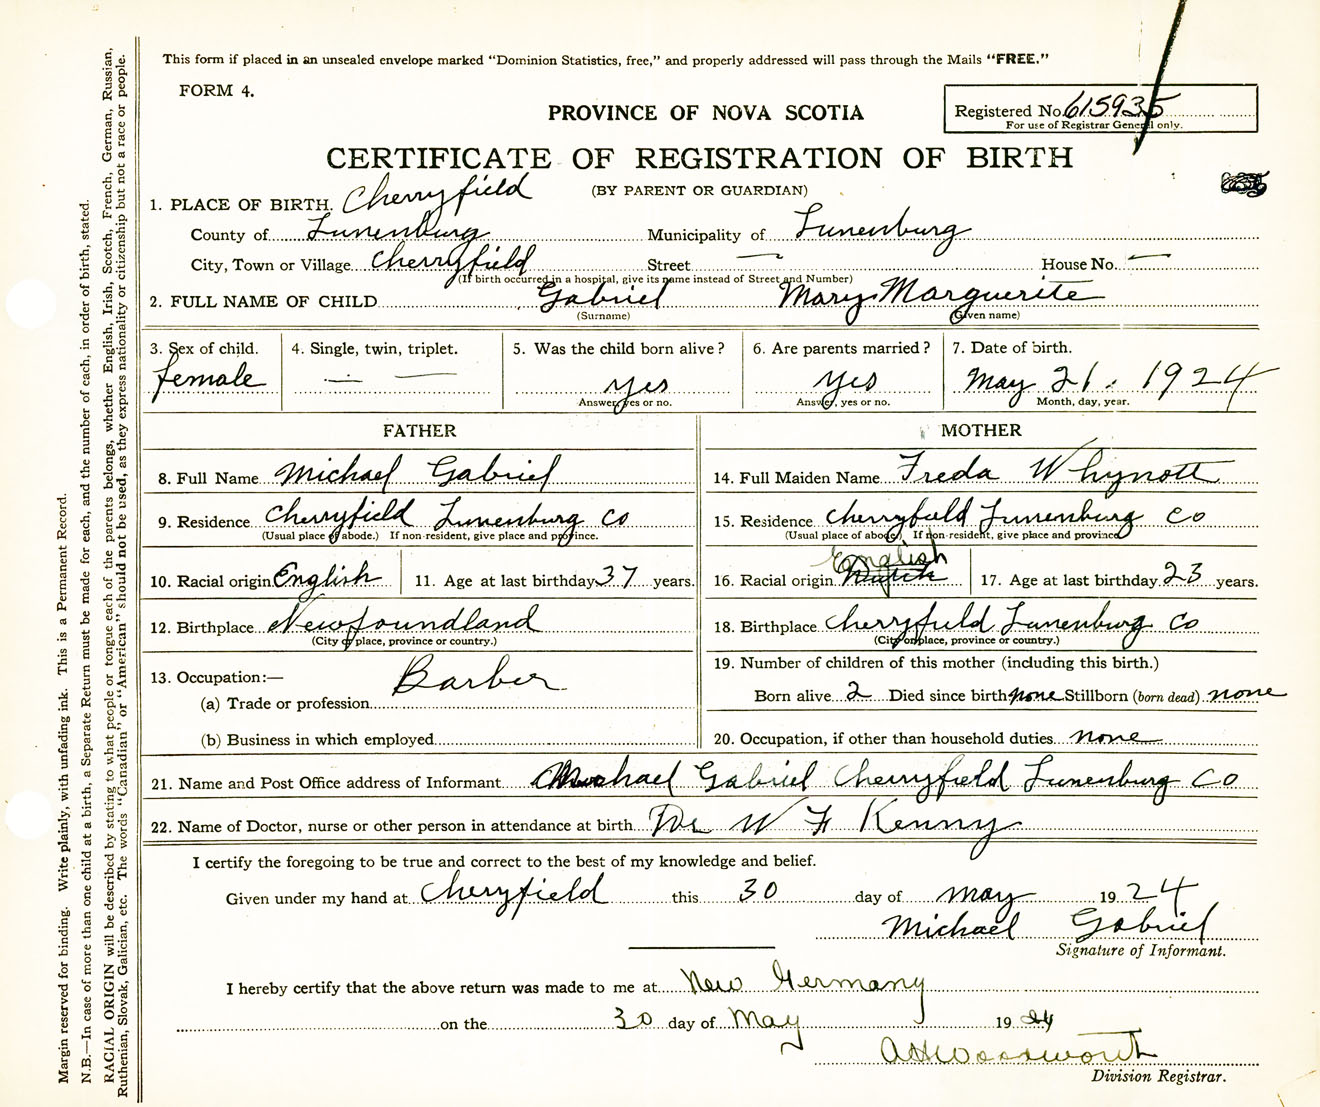 This form if placed in an unsealed envelope marked "Dominion Statistics, free," and properly addressed will pass through the Mails "FREE."
FORM 4.
PROVINCE OF NOVA SCOTIA
Registered No. 615935
For use of Registrar General only.
CERTIFICATE OF REGISTRATION OF BIRTH
(BY PARENT OR GUARDIAN)
1. PLACE OF BIRTH. Cherryfield
County of Lunenburg Municipality of Lunenburg
City, Town or Village Cherryfield Street — House No. —
(If birth occurred in a hospital, give its name instead of Street and Number)
2. FULL NAME OF CHILD Gabriel Mary Marguerite
(Surname) (Given name)
3. Sex of child. 4. Single, twin, triplet. 5. Was the child born alive? 6. Are parents married? 7. Date of birth.
female — — yes yes May 21. 1924
Answer, yes or no. Answer, yes or no. Month, day, year.
FATHER MOTHER
8. Full Name Michael Gabriel 14. Full Maiden Name Freda Whynott
9. Residence Cherryfield Lunenburg Co 15. Residence Cherryfield Lunenburg Co
(Usual place of abode.) If non-resident, give place and province. (Usual place of abode.) If non-resident, give place and province.
English
10. Racial origin English 11. Age at last birthday 37 years. 16. Racial origin 17. Age at last birthday. 23 years.
12. Birthplace Newfoundland 18. Birthplace Cherryfield Lunenburg Co
(City or place, province or country.) (City or place, province or country.)
19. Number of children of this mother (including this birth.)
13. Occupation:— Barber
Born alive 2 Died since birth none Stillborn (born dead) none
(a) Trade or profession
(b) Business in which employed 20. Occupation, if other than household duties none
21. Name and Post Office address of Informant Michael Gabriel Cherryfield Lunenburg Co
22. Name of Doctor, nurse or other person in attendance at birth Dr W F Kenny
I certify the foregoing to be true and correct to the best of my knowledge and belief.
Given under my hand at Cheryfield this 30 day of May 1924
Michael Gabriel
Signature of Informant.
I hereby certify that the above return was made to me at New Germany
on the 30 day of May 1924
Division Registrar.
Margin reserved for binding. Write plainly, with unfading ink. This is a Permanent Record.
N.B.—In case of more than one child at a birth, a Separate Return must be made for each, and the number of each, in order of birth, stated.
RACIAL ORIGIN will be described by stating to what people or tongue each of the parents belongs, whether English, Irish, Scotch, French, German, Russian,
Ruthenian, Slovak, Galician, etc. The words "Canadian" or "American" should not be used, as they express nationality or citizenship but not a race or people.